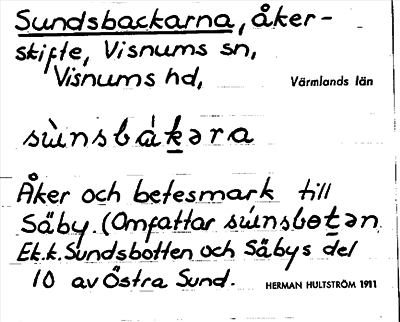 Sundsbackarna, åker-
skifte, Visnums sn,
Visnums hd,
Värmlands län
sùnsbàk̲əra
Åker och betesmark till
Säby. (Omfattar súnsbɵt̲ən
Ek.k. Sundsbotten och Säbys del
10 av Östra Sund.
HERMAN HULTSTRÖM 1911